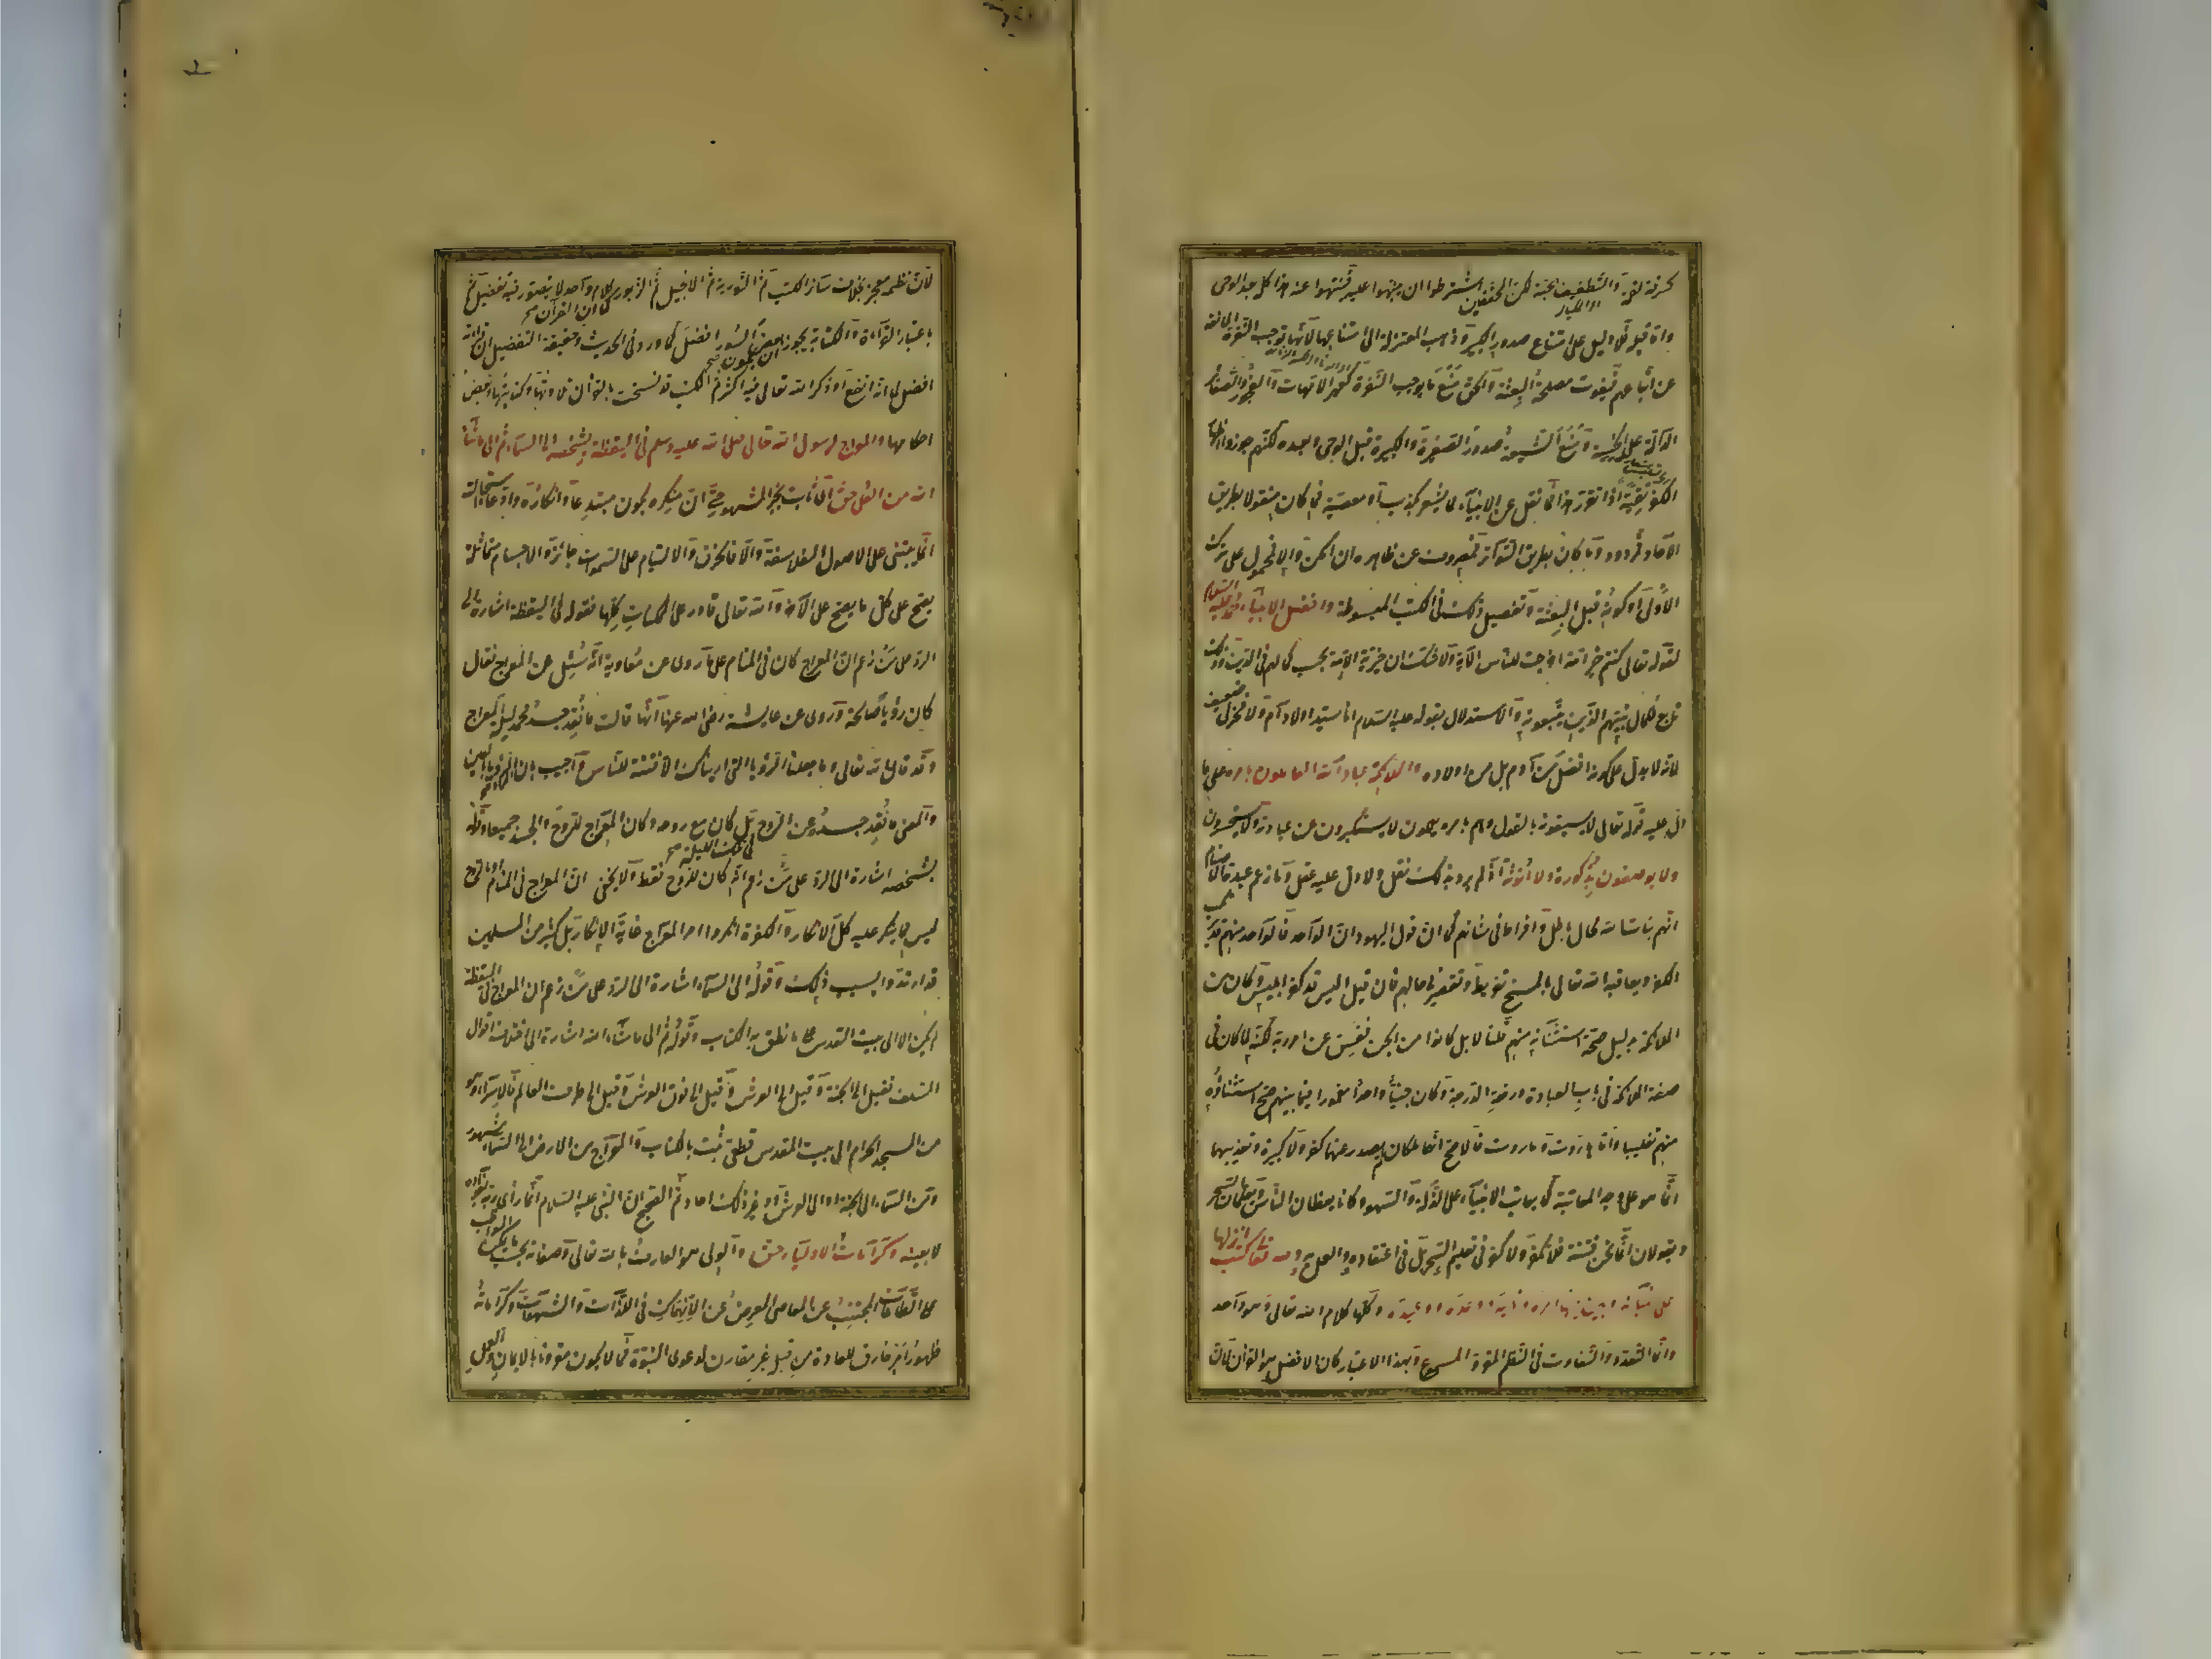 كسرقة لقمة والتطفيف بحبة لكن المحققين اشترطوا ان ينبهوا عليه فينتهوا عنه هذا كله بعد الوحى
واما قبله فلا دليل على امتناع صدور الكبيرة وذهب المعتزلة الى امتناعها لانها توجب النفرة المانعة
عن اتباعهم فيفوت مصلحة البعثة والحق منع ما يوجب النفرة كعهر الامهات والفجور والصغائر
الدالة على الخسة ومنع الشيعة صدور الصغيرة والكبيرة قبل الوحى وبعده لكنهم جوزوا اظهار
الكفر تقية اذا تقرر هذا فما نقل عن الانبياء مما يشعر بكذب او معصية فما كان منقولا بطريق
الآحاد فمردود وما كان بطريق التواتر فمصروف عن ظاهره ان امكن والا فمحمول على ترك
الاولى او كونه قبل البعثة وتفصيل ذلك فى الكتب المبسوطة وافضل الانبياء محمد عليه السلام
لقوله تعالى كنتم خير امة اخرجت للناس الآية ولا شك ان خيرية الامة بحسب كمالهم فى الدين وذلك
تابع لكمال نبيهم الذى يتبعونه والاستدلال بقوله عليه السلام انا سيد اولاد آدم ولا فخر لى ضعيف
لانه لا يدل على كونه افضل من آدم بل من اولاده والملائكة عباد الله العاملون بامره على ما
دل عليه قوله تعالى لا يسبقونه بالقول وهم بامره يعملون لا يستكبرون عن عبادته ولا يستحسرون
ولا يوصفون بذكورة ولا انوثة اذ لم يرد بذلك نقل ولا دل عليه عقل وما زعم عبدة الاصنام
انهم بنات الله محال باطل وافراط فى شانهم كما ان قول اليهود ان الواحد فالواحد منهم قد يرتكب
الكفر ويعاقبه الله تعالى بالمسخ تفريط وتقصير فى حالهم فان قيل اليس قد كفر ابليس وكان من
الملائكة بدليل صحة استثنائه منهم قلنا لا بل كان من الجن ففسق عن امر ربه لكنه لما كان فى
صفة الملائكة فى باب العبادة ورفعة الدرجة وكان جنيا واحدا مغمورا فيما بينهم صح استثناؤه
منهم تغليبا واما هاروت وماروت فالاصح انهما ملكان لم يصدر عنهما كفر ولا كبيرة وتعذيبهما
انما هو على وجه المعاتبة كما يعاتب الانبياء على الزلة والسهو وكانا يعظان الناس ويعلمان السحر
ويقولان انما نحن فتنة فلا تكفر ولا كفر فى تعليم السحر بل فى اعتقاده والعمل به ولله تعالى كتب انزلها
على انبيائه وبين فيها امره ونهيه ووعده ووعيده وكلها كلام الله تعالى وهو واحد
وانما التعدد والتفاوت فى النظم المقروء المسموع وبهذا الاعتبار كان الافضل هو القرآن لان
لان نظمه معجز بخلاف سائر الكتب ثم التورية ثم الانجيل ثم الزبور كما ان القرآن كلام واحد لا يتصور فيه تفضيل ثم
باعتبار القراءة والكتابة يجوز ان يكون بعض السور افضل كما ورد فى الحديث وحقيقة التفضيل ان قراءته
افضل لما انه انفع او ذكر الله تعالى فيه اكثر ثم الكتب قد نسخت بالقرآن تلاوتها وكتابتها وبعض
احكامها والمعراج لرسول الله تعالى صلى الله عليه وسلم فى اليقظة بشخصه الى السماء ثم الى ما شاء
الله من العلى حق اى ثابت بالخبر المشهور حتى ان منكره يكون مبتدعا وانكاره وادعاء استحالته
انما يبتنى على الاصول الفلسفة والا فالخرق والالتيام على السموات جائز والاجسام متماثلة
يصح على كل ما يصح على الآخر والله تعالى قادر على الممكنات كلها فقوله فى اليقظة اشارة الى
الرد على من زعم ان المعراج كان فى المنام على ما روى عن معاوية انه سئل عن المعراج فقال
كان رؤيا صالحة وروى عن عايشة رضى الله عنها انها قالت ما فقد جسد محمد ليلة المعراج
وقد قال الله تعالى وما جعلنا الرؤيا التى اريناك الا فتنة للناس واجيب بان المراد الرؤيا بالعين
والمعنى ما فقد جسده عن الروح بل كان مع روحه وكان المعراج للروح والجسد جميعا وقوله
بشخصه اشارة الى الرد على من زعم انه كان للروح فقط فى تلك الليلة ولا يخفى ان المعراج فى المنام او بالروح
ليس مما ينكر عليه كل الانكار والكفرة انكروا امر المعراج غاية الانكار بل كثير من المسلمين
قد ارتدوا بسبب ذلك وقوله الى السماء اشارة الى الرد على من زعم ان المعراج فى اليقظة
لم يكن الا الى بيت المقدس على ما نطق به الكتاب وقوله ثم الى ما شاء الله اشارة الى اختلاف اقوال
السلف فقيل الى الجنة وقيل الى العرش وقيل الى فوق العرش وقيل الى طرف العالم فالاسراء وهو
من المسجد الحرام الى بيت المقدس قطعى ثبت بالكتاب والمعراج من الارض الى السماء مشهور
ومن السماء الى الجنة او الى العرش او غير ذلك احاد ثم الصحيح ان النبى عليه السلام انما رأى ربه بفؤاده
لا بعينه وكرامات الاولياء حق والولى هو العارف بالله تعالى وصفاته بحسب ما يمكن المواظب
على الطاعات المجتنب عن المعاصى المعرض عن الانهماك فى اللذات والشهوات وكراماته
ظهور امر خارق للعادة من قبله غير مقارن لدعوى النبوة فما لا يكون مقرونا بالايمان والعمل